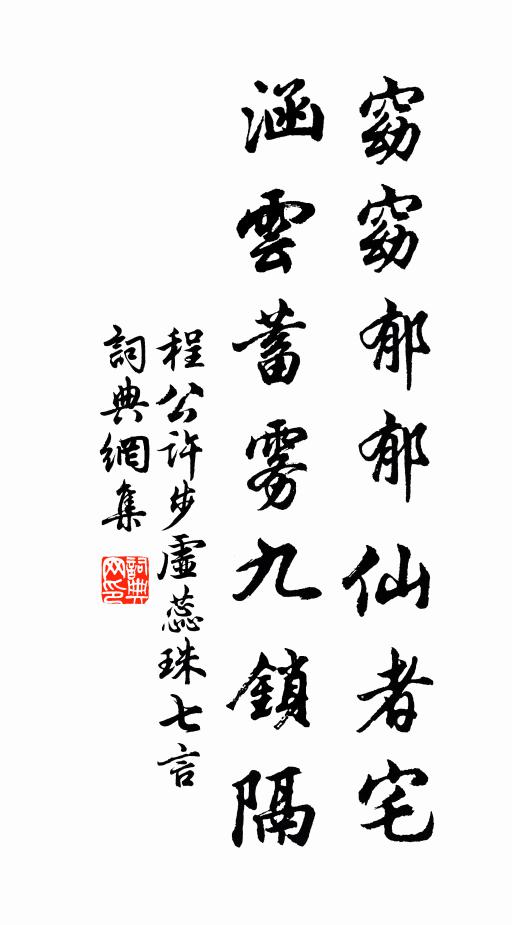 窈窈郁郁仙者宅
涵雲蓄雾九鎖隔
程公許步虛蕊珠七言
詞典網集
詞典网印